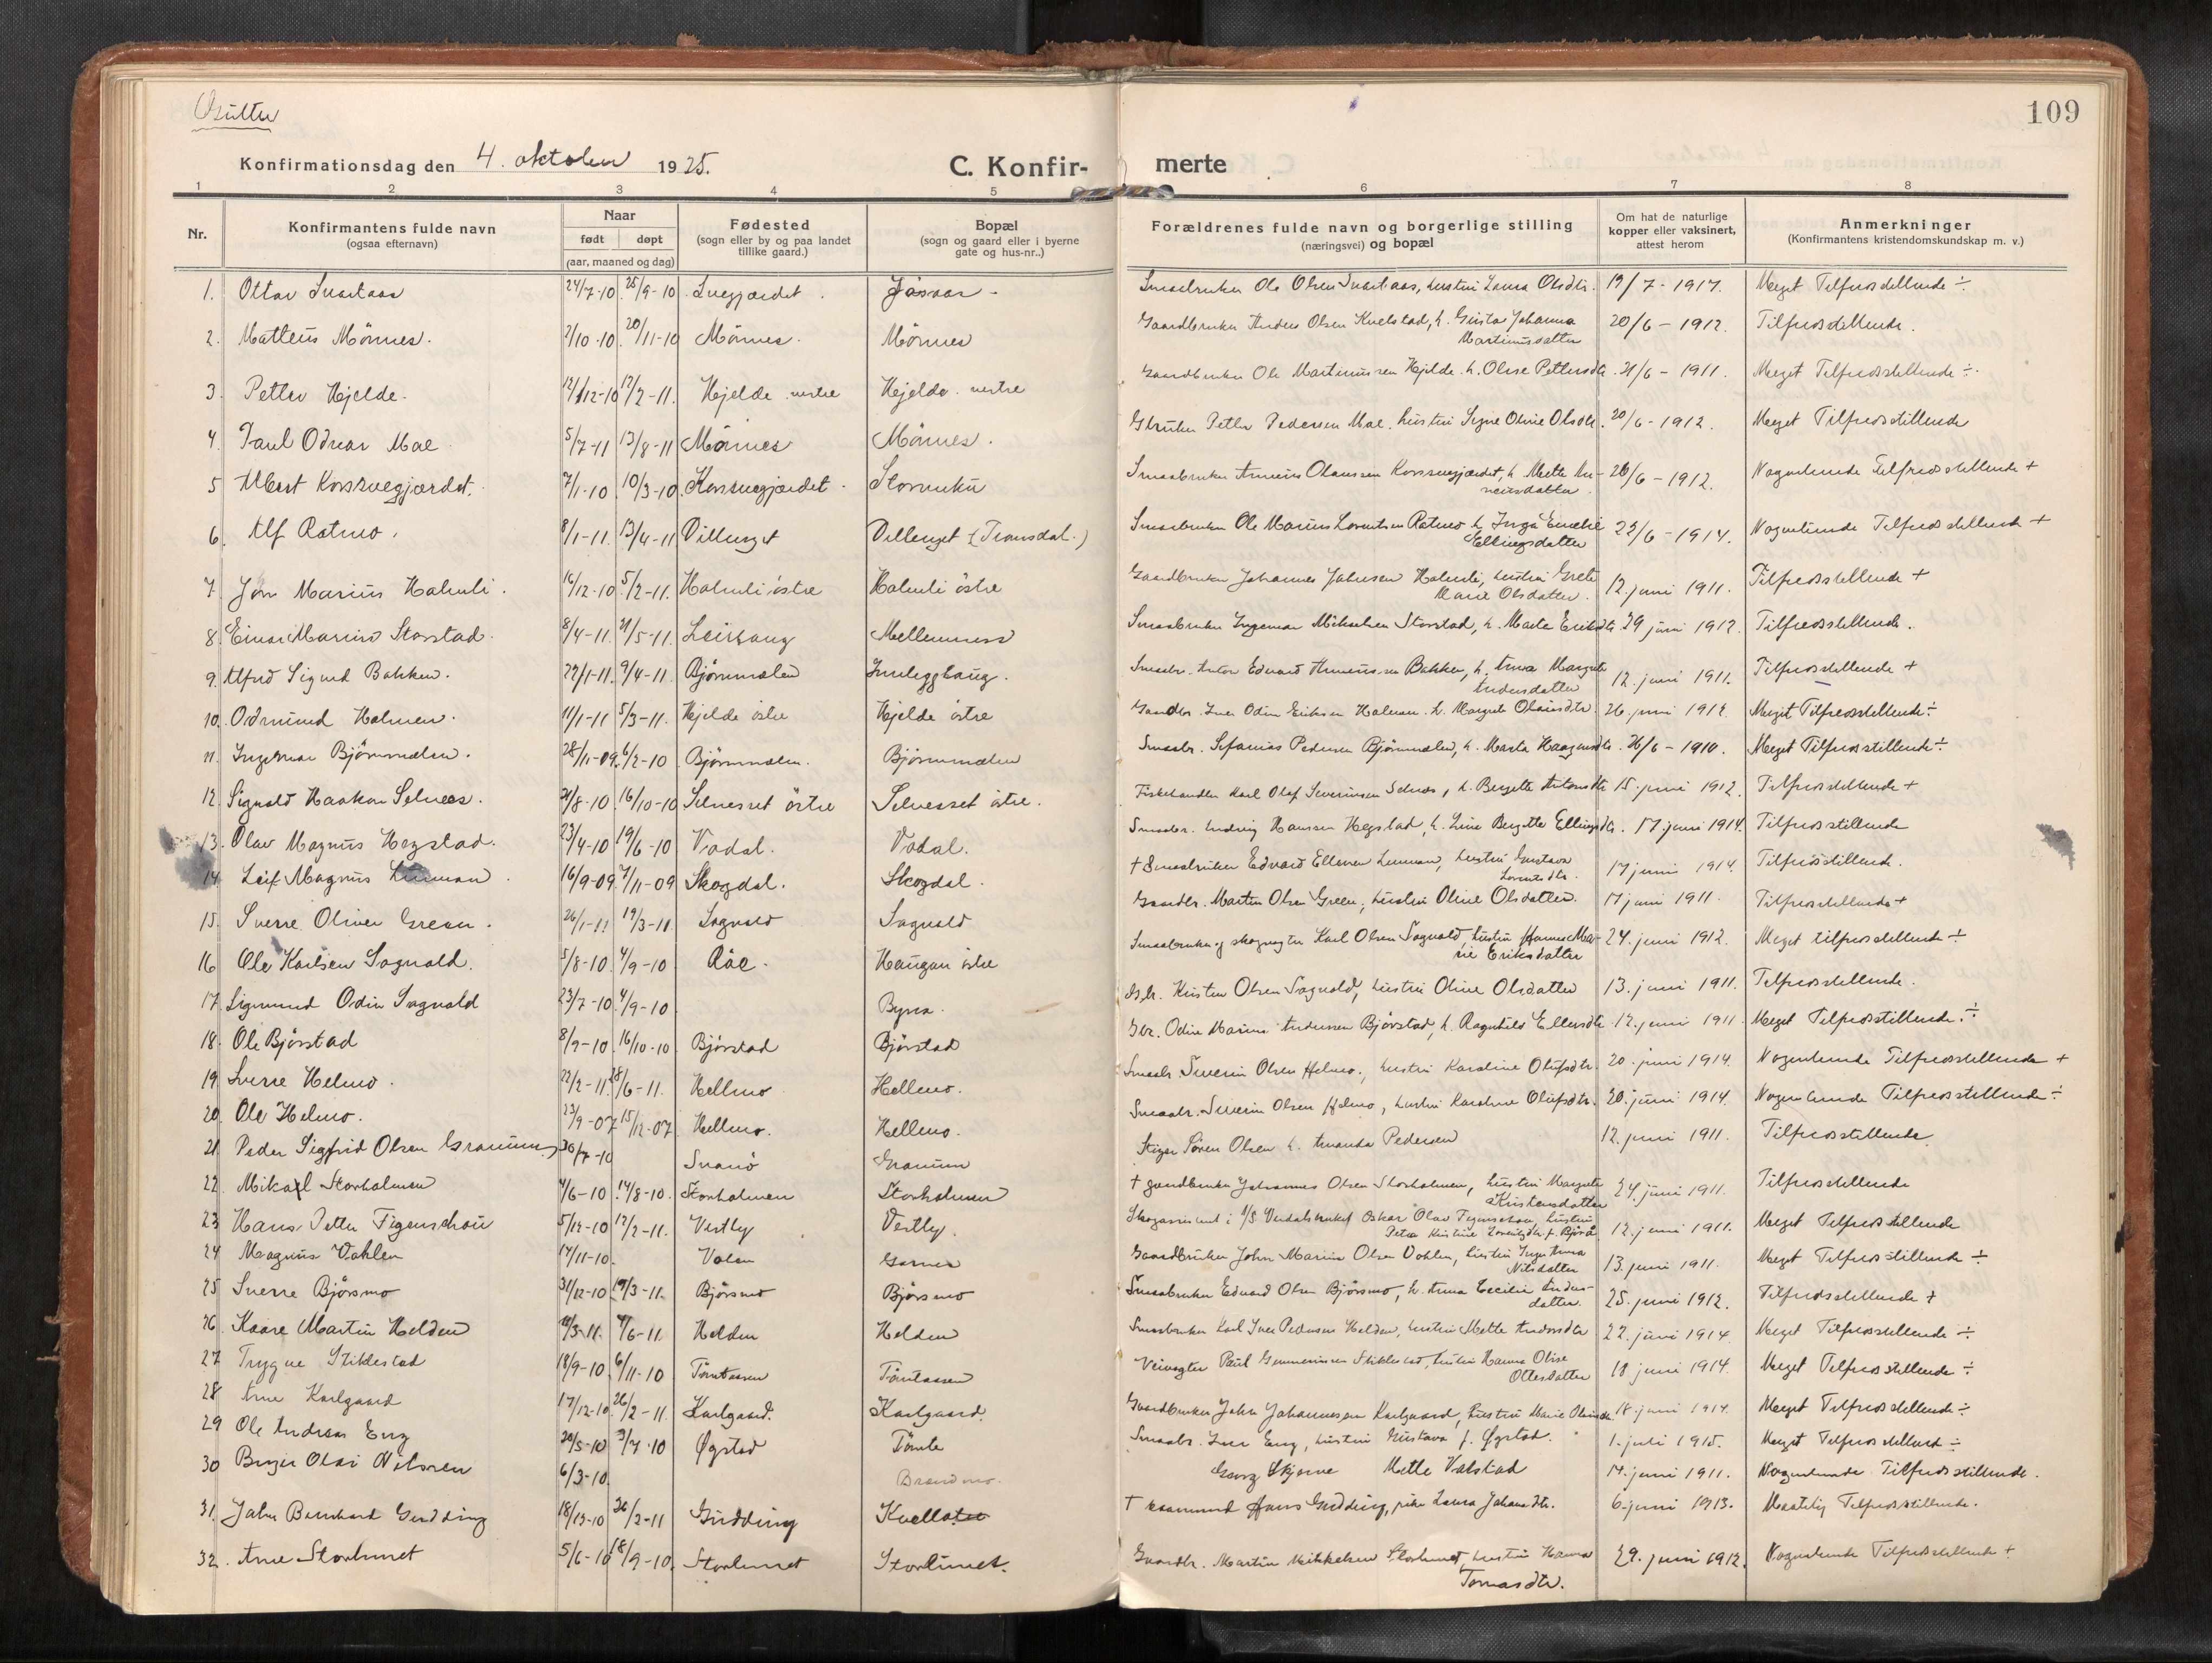 109
Konfirmationsdag den 4. oktober 1925.
C. Konfir-
merte
1 2 3 4 5 6 7 8
Nr.
Konfirmantens fulde navn
(ogsaa efternavn)
Naar
født døpt
(aar, maaned og dag)
Fødested
(sogn eller by og paa landet
tillike gaard.)
Bopæl
(sogn og gaard eller i byerne
gate og hus-nr..)
Forældrenes fulde navn og borgerlige stilling
(næringsvei) og bopæl
Om hat de naturlige
kopper eller vaksinert,
attest herom
Anmerkninger
(Konfirmantens kristendomskundskap m. v.)
1. Ottar 24/7-10 25/9-10 Ole Olsen hustru Laura Olsdtr. 19/7-1917. Meget Tilfredsstillende ÷
2. Matteus Mönnes. 2/10-10. 20/11-10 Mönnes. Mönnes Gaardbruker Anders Olsen 20/6-1912. Tilfredsstillende.
Martinusdatter
3. Petter Hjelde. 12/12-10 12/2-11. Hjelde vestre Hjelde vestre Gaardbruker Ole Martinussen Hjelde h. Oline Pettersdtr. 21/6-1911. Meget Tilfredsstillende ÷
4. Paul Odvar Moe 5/7-11 13/8-11 Mönnes Mönnes. Gbruker Petter Pedersen Moe, hustru Signe Oline Olsdtr. 20/6-1912. Meget Tilfredsstillende
5. Albert Korsvegjærdet. 7/1-10 10/3-10 Korsvegjærdet Smaabruker Olaussen Korsvegjærdet, h. Mette 20/6-1912. Nogenlunde Tilfredsstillende +
6. Alf Ratmo. 8/1-11. 13/4-11 Smaabruker Ole Marius Lorentsen Ratmo h. Inga Emelie 22/6-1914. Nogenlunde Tilfredsstillende +
Ellingsdatter
7. Jon Marius Holmli. 16/12-10 5/2-11. Holmli östre Holmli östre Gaardbruker Johannes Johnsen Holmli, hustru Grete 12. juni 1911. Tilfredsstillende +
Marie Olsdatter.
8. Einar Marius Storstad. 8/4-11. 21/5-11. Smaabruker Ingemar Mikalsen Storstad, h. Marta Eriksdtr. 29 juni 1912. Tilfredsstillende.
9. Alfred Sigurd Bakken. 22/1-11. 9/4-11 Björnmelen Smaabr. Anton Edvard Bakken, h. Anna Margrete 12. juni 1911. Tilfredsstillende +
Andersdatter
10. Odmund Holmen. 11/1-11 5/3-11. Hjelde östre Hjelde östre Gaardbr. Iver Odin Eriksen Holmen h. Margrete Olausdtr. 26 juni 1912. Meget Tilfredsstillende ÷
11. Ingemar Björnmelen. 28/11-09. 6/2-10 Björnmelen. Björnmelen Smaabr. Sefanias Pedersen Björnmelen, h. Marta Haagensdtr. 26/6-1910. Meget Tilfredsstillende ÷
12. Sigvald Haakon Selnæs. 21/8-10. 16/10-10 Selnesset östre Selnesset östre. Fiskehandler Karl Olaf Severinsen Selnæs, h. Bergitte Antonsdtr. 15. juni 1912. Tilfredsstillende +
13. Olav Magnus Hegstad. 23/4-10 19/6-10 Vodal. Vodal. Smaabr. Ludvig Hansen Hegstad, h. Line Bergitte Ellingsdtr. 17. juni 1914. Tilfredsstillende
14 Leif Magnus 16/9-09. 7/11-09 Skogdal. Skogdal. + Smaabruker Edvard Ellevsen hustru Gustava 17 juni 1914. Tilfredsstillende.
Lorentsdtr.
15. Sverre Oliver Green. 26/1-11 19/3-11 Sagvold Sagvold Gaardbr. Martin Olsen Green, hustru Oline Olsdatter. 17 juni 1911. Tilfredsstillende +
16 Ole Karlsen Sagvold. 5/8-10. 4/9-10 Råe. Haugan östre Smaabruker og skogvogter Karl Olsen Sagvold, hustru Hanna Ma- 24. juni 1912. Meget tilfredsstillende ÷
rie Eriksdatter
17. Sigmund Odin Sagvold 23/7-10 4/9-10 Byna. Kristen Olsen Sagvold, hustru Oline Olsdatter 13. juni 1911. Tilfredsstillende.
18. Ole Björstad 8/9-10. 16/10-10 Björstad Björstad Gbr. Odin Marius Andersen Björstad, h. Ragnhild Ellevsdtr. 12. juni 1911. Meget Tilfredsstillende ÷
19. Sverre Helmo. 22/2-11. 28/6-11. Hellmo Hellmo. Smaabr. Severin Olsen Helmo, hustru Karoline Olufsdtr. 20. juni 1914. Nogenlunde Tilfredsstillende +
20. Ole Helmo. 23/9-07 15/12-07 Hellmo. Hellmo. Smaabr. Severin Olsen Helmo, hustru Karoline Olufsdtr. 20. juni 1914. Nogenlunde Tilfredsstillende ÷
21. Peder Sigfrid Olsen Granum 30/7-10 Svanö Granum Stiger Sören Olsen h. Amanda Pedersen 12. juni 1911. Tilfredsstillende.
22. Mikal Storholmen 4/6-10 14/8-10. Storholmen Storholmen + gaardbruker Johannes Olsen Storholmen, hustru Margrete 24. juni 1911. Tilfredsstillende
Kristensdatter
23 Hans Petter Figenschou 5/12-10 12/2-11. Vestby Vestby. Skogassistent i A/S Verdalsbruket Oskar Olav Figenschou, hustru 12. juni 1911. Meget Tilfredsstillende
Petra Kristine Lorentsdtr. f. Björå
24 Magnus Vohlen 14/11-10. Volen Garnes Gaardbruker John Marius Olsen Vohlen, hustru Inga Anna 13. juni 1911. Meget Tilfredsstillende ÷
Nilsdatter
25 Sverre Björsmo 31/12-10. 19/3-11. Björsmo Björsmo Smaabruker Edvard Olsen Björsmo, h. Anna Cecilie Anders- 25. juni 1912. Tilfredsstillende +
datter.
26. Kaare Martin Helden Helden Helden Smaabruker Karl Iver Pedersen Helden, hustru Mette Andersdtr 22. juni 1914. Meget Tilfredsstillende ÷
27 Trygve Stiklestad 18/9-10 6/11-10 Tömtaasen Tömtaasen Veivogter Paul Stiklestad, hustru Hanna Oline 18 juni 1914. Meget Tilfredsstillende ÷
Ottesdatter
28 Arne Karlgaard 17/12-10. 26/2-11. Karlgaard. Karlgaard. Gaardbruker John Johannessen Karlgaard, hustru Marie 18. juni 1914. Meget Tilfredsstillende ÷
29 Ole Andreas Eng 20/5-10 3/7-10 Øgstad Tömte Smaabr. Iver Eng, hustru Gustava f. Øgstad. 1. juli 1915. Meget Tilfredsstillende ÷
30 Birger Olai Nilssen 6/3-10. Brandmo. Georg Skjerve Mette Valstad 14. juni 1911. Nogenlunde Tilfredsstillende.
31. John Bernhard Gudding 18/12-10 26/2-11 Gudding + Hans Gudding, pike Laura Johansdtr. 6. juni 1913. Maatelig Tilfredsstillende.
32. Arne Storlunet 5/6-10 18/9-10. Storlunet Storlunet. Gaardbr. Martin Mikkelsen Storlunet, hustru Hanna 29. juni 1912. Nogenlunde Tilfredsstillende +
Tomasdtr.